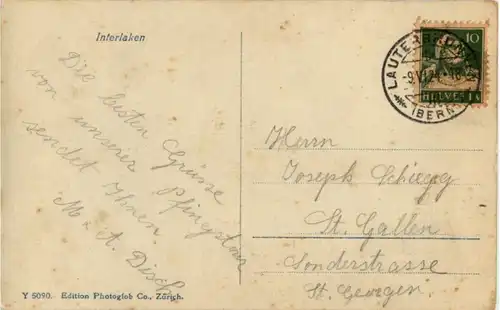 Interlaken
Die besten Grüsse
von unserer Pfingsttour
sendet Ihnen
M. A. Disch
Y 5090. Edition Photoglob Co., Zürich.
10
HELVETIA
LAUTERBRUNNEN
9.VI.24
(BERN)
Herrn
Joseph Schiegg
St. Gallen
Sonderstrasse
St. Georgen